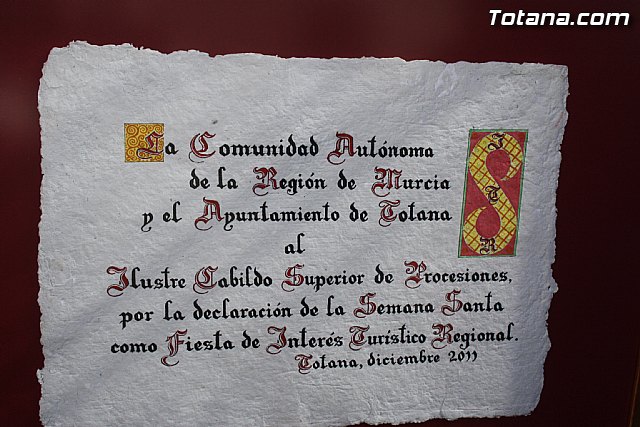 Totana.com
La Comunidad Autónoma
de la Región de Murcia
y el Ayuntamiento de Totana
al
Ilustre Cabildo Superior de Procesiones,
por la declaración de la Semana Santa
como Fiesta de Interés Turístico Regional.
Totana, diciembre 2011
I
T
R